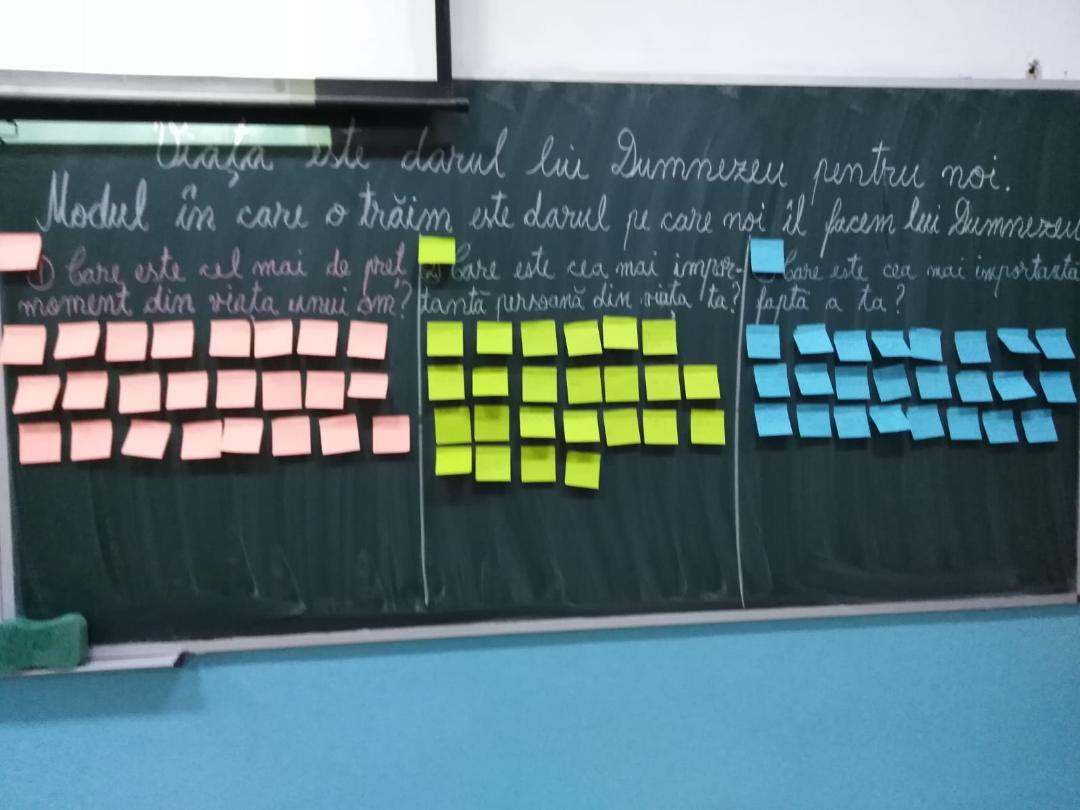 Viața este darul lui Dumnezeu pentru noi.
Modul în care o trăim este darul pe care noi îl facem lui Dumnezeu
1) Care este cel mai de preț
moment din viața unui om?
2) Care este cea mai impor-
tantă persoană din viața ta?
Care este cea mai importantă
faptă a ta?